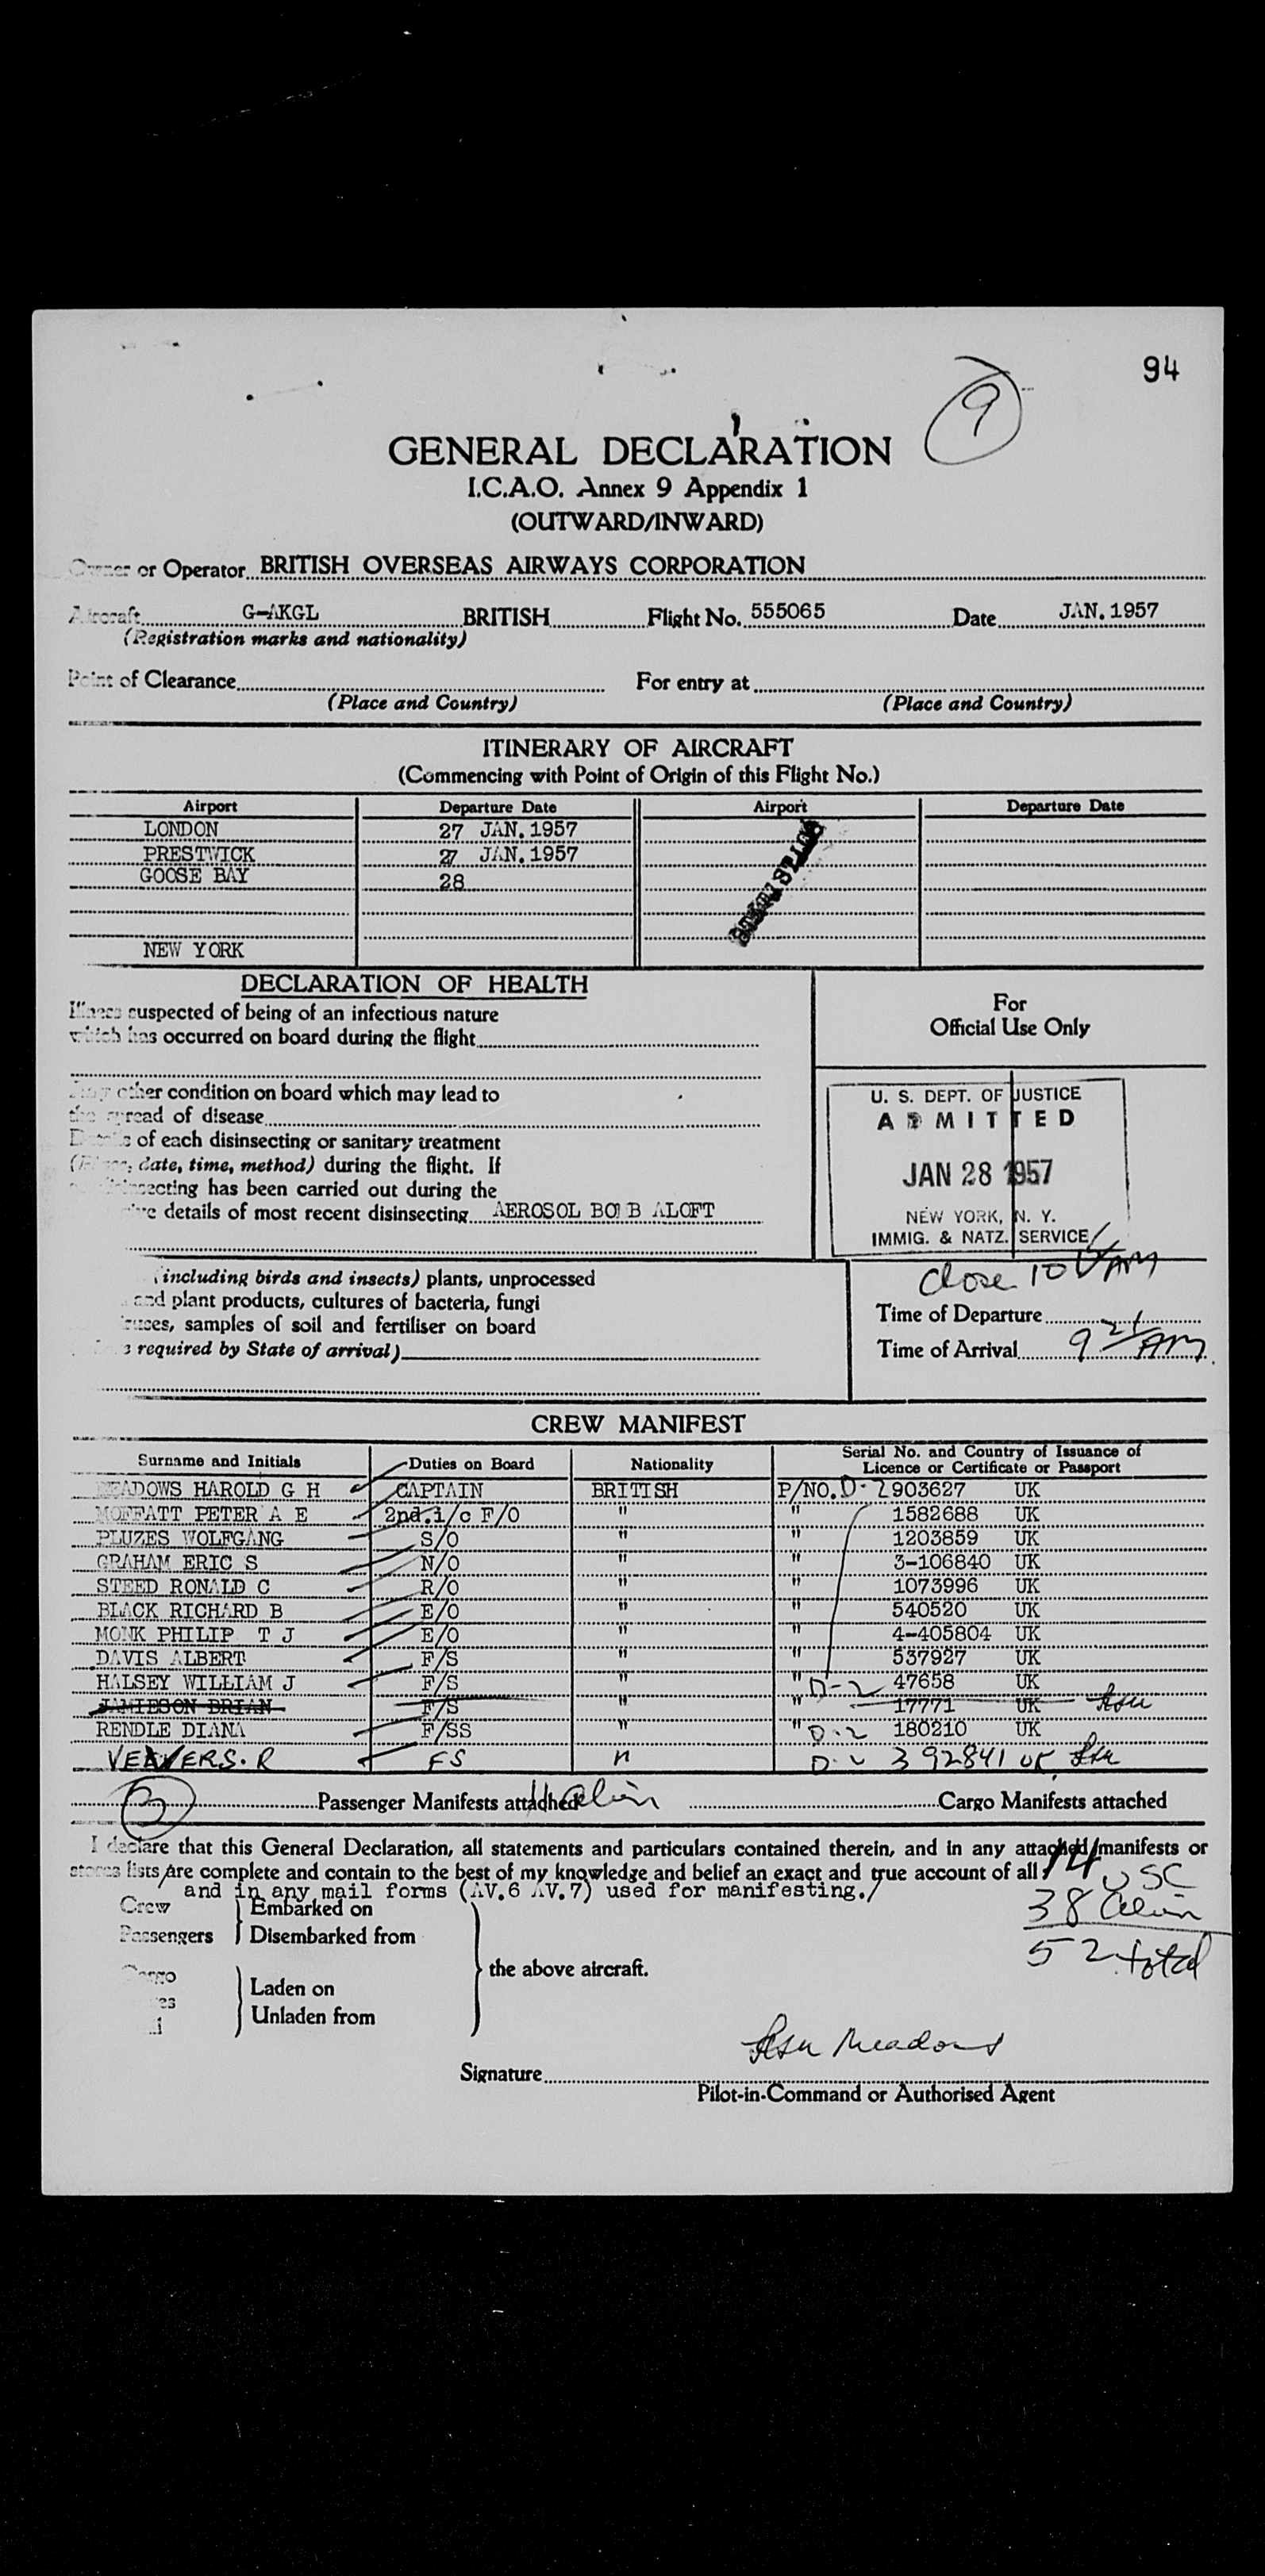 94
9
GENERAL DECLARATION
I.C.A.O. Annex 9 Appendix 1
(OUTWARD/INWARD)
Owner or Operator BRITISH OVERSEAS AIRWAYS CORPORATION
Aircraft G-AKGL BRITISH Flight No. 555065 Date JAN. 1957
(Registration marks and nationality)
Point of Clearance For entry at
(Place and Country) (Place and Country)
ITINERARY OF AIRCRAFT
(Commencing with Point of Origin of this Flight No.)
Airport Departure Date Airport Departure Date
LONDON 27 JAN. 1957
PRESTWICK 27 JAN. 1957
GOOSE BAY 28
NEW YORK
DECLARATION OF HEALTH
Illness suspected of being of an infectious nature
which has occurred on board during the flight
For
Official Use Only
Any other condition on board which may lead to
the spread of disease
Details of each disinsecting or sanitary treatment
(Place, date, time, method) during the flight. If
disinsecting has been carried out during the
details of most recent disinsecting AEROSOL BOMB ALOFT
U. S. DEPT. OF JUSTICE
ADMITTED
JAN 28 1957
NEW YORK, N. Y.
IMMIG. & NATZ. SERVICE
(including birds and insects) plants, unprocessed
and plant products, cultures of bacteria, fungi
samples of soil and fertiliser on board
required by State of arrival)
Close 10 AM
Time of Departure
Time of Arrival 9 21 AM
CREW MANIFEST
Surname and Initials Duties on Board Nationality Serial No. and Country of Issuance of
Licence or Certificate or Passport
MEADOWS HAROLD G H CAPTAIN BRITISH P/NO. D-2 903627 UK
MOFFATT PETER A E 2nd.i/c F/O " " 1582688 UK
PLUZES WOLFGANG S/O " " 1203859 UK
GRAHAM ERIC S N/O " " 3-106840 UK
STEED RONALD C R/O " " 1073996 UK
BLACK RICHARD B E/O " " 540520 UK
MONK PHILIP T J E/O " " 4-405804 UK
DAVIS ALBERT F/S " " 537927 UK
HALSEY WILLIAM J F/S " " D-2 47658 UK
JAMIESON BRIAN F/S " " 17771 UK
RENDLE DIANA F/SS " " D-2 180210 UK
VEAVERS. R FS " D-2 392841 UK
Passenger Manifests attached Cargo Manifests attached
I declare that this General Declaration, all statements and particulars contained therein, and in any attached manifests or
stores lists are complete and contain to the best of my knowledge and belief an exact and true account of all
and in any mail forms (AV.6 AV.7) used for manifesting./
14 USC
38 Alien
52 total
Crew Embarked on
Passengers Disembarked from
the above aircraft.
Cargo
Laden on
Unladen from
Meadows
Signature
Pilot-in-Command or Authorised Agent